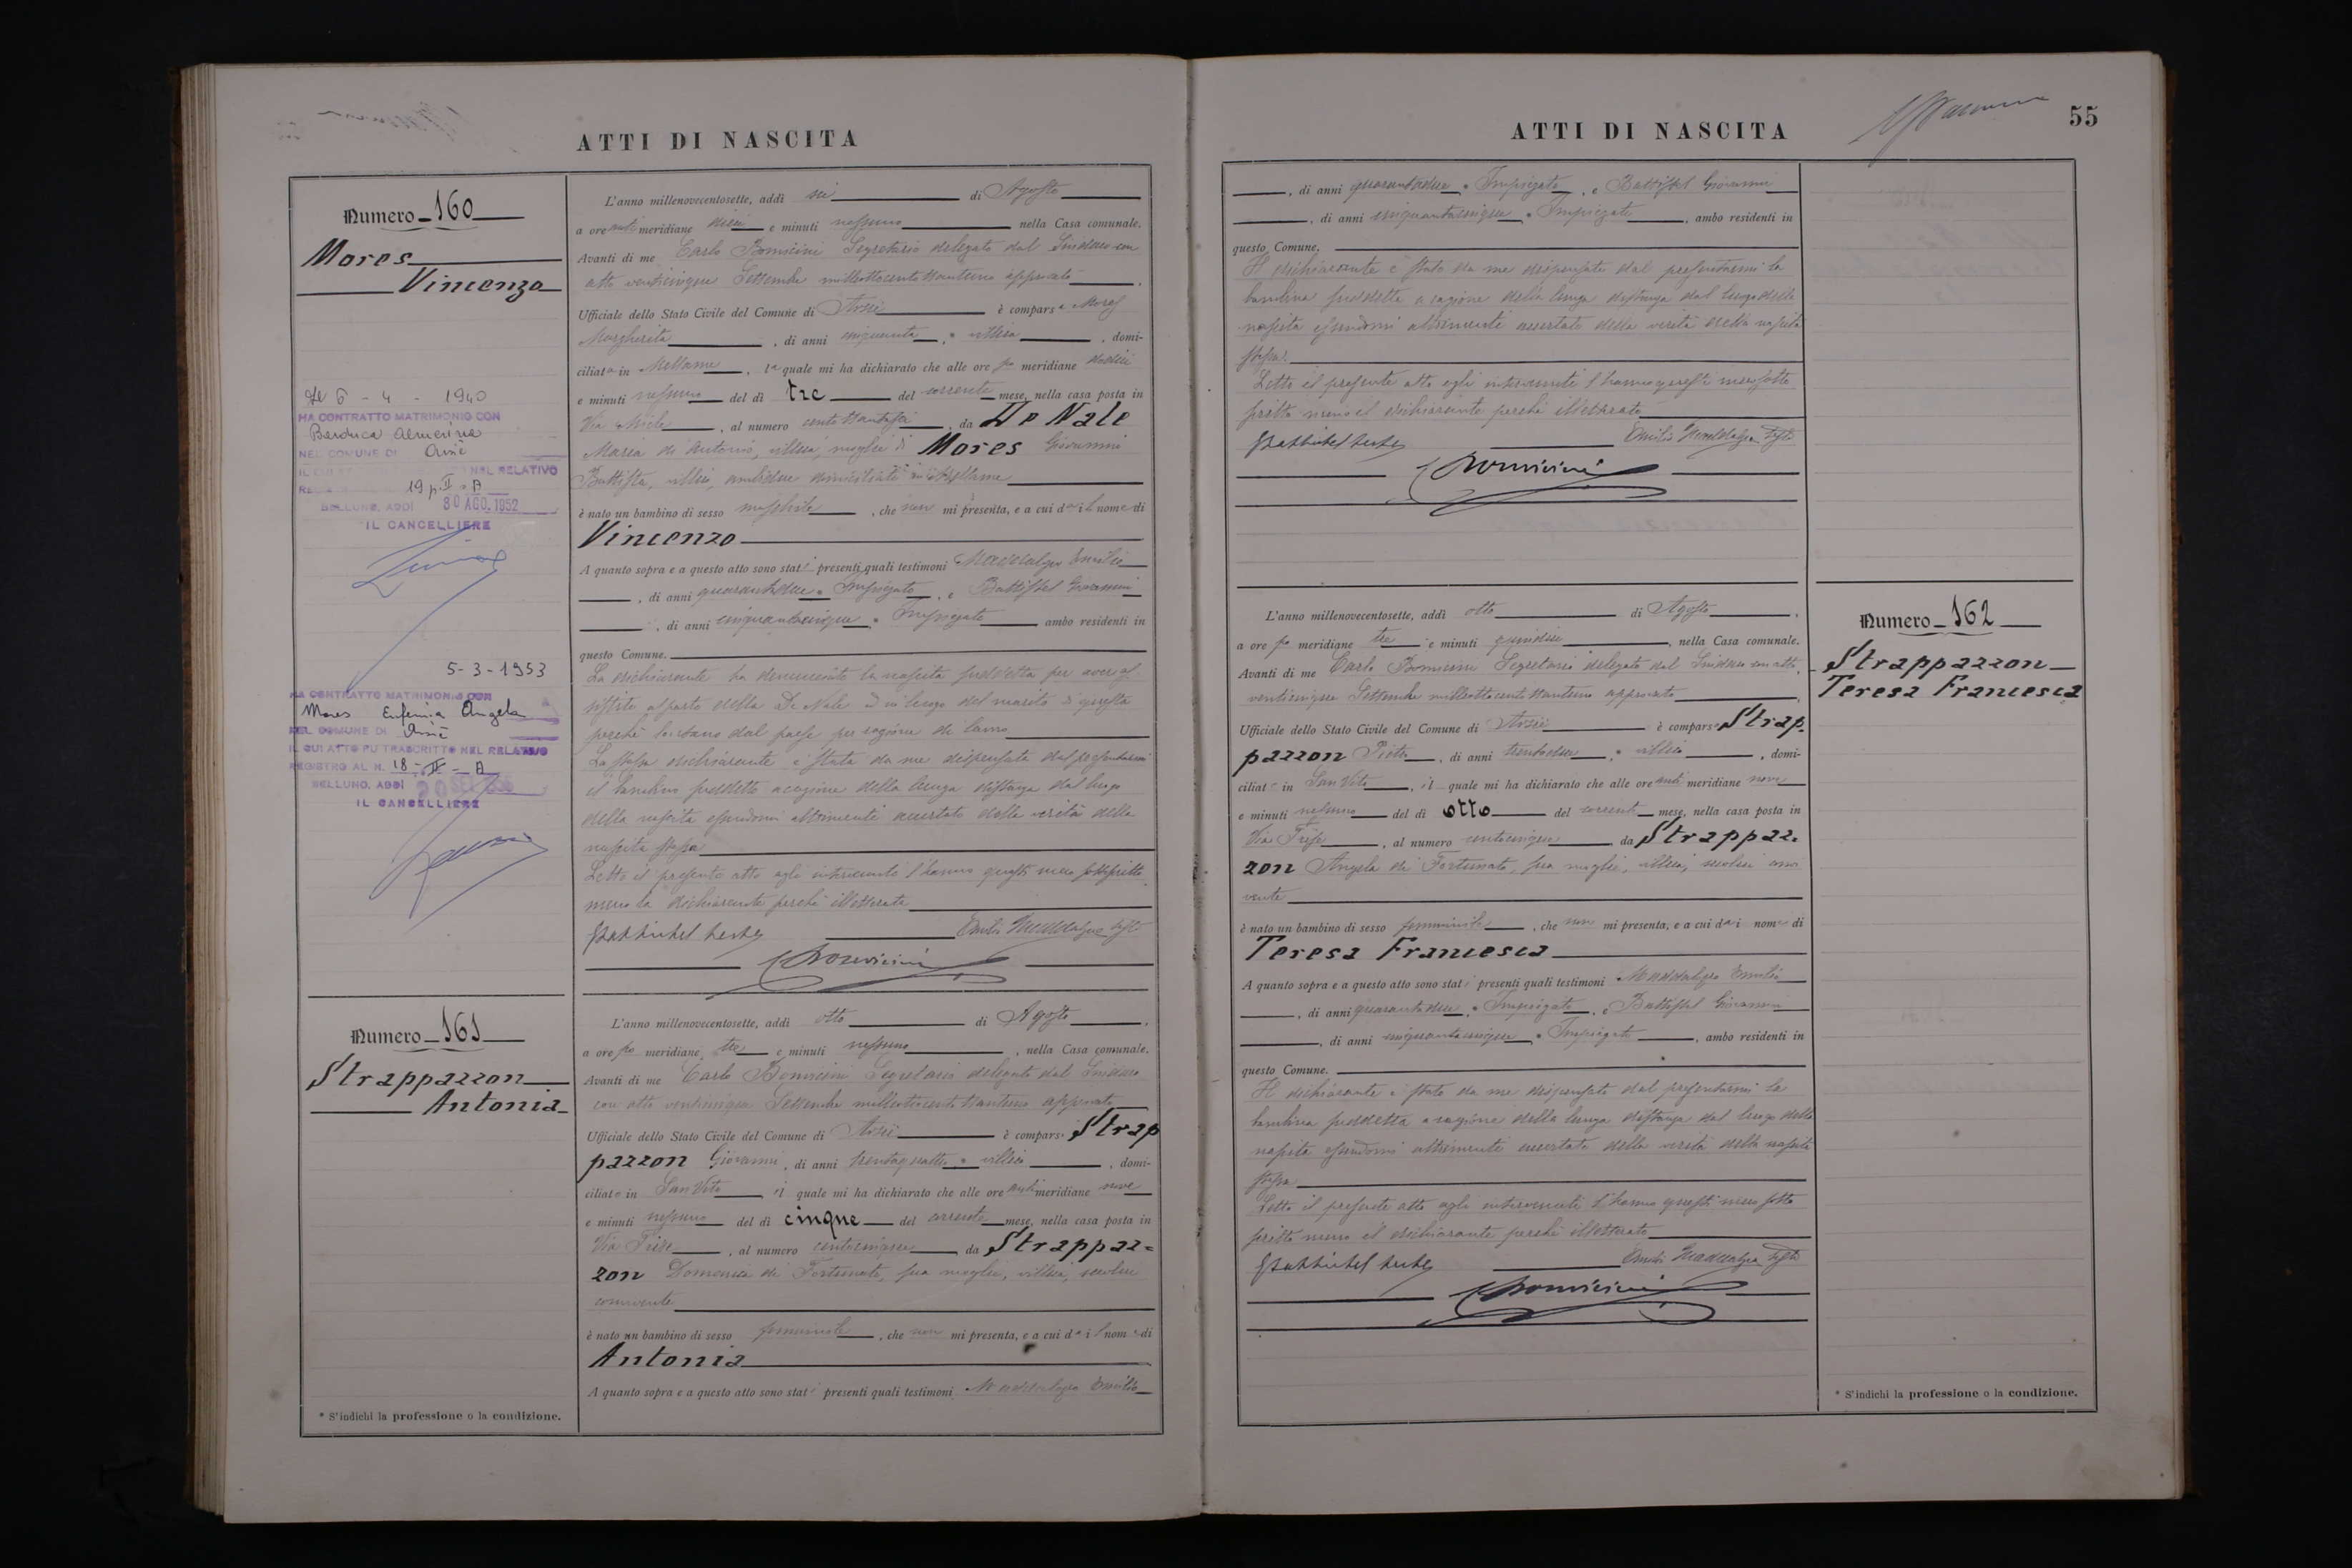 ATTI DI NASCITA
Numero 160
Mores
Vincenzo
Li 6 - 4 - 1940
HA CONTRATTO MATRIMONIO CON
Almerina
NEL COMUNE DI Arsiè
NEL RELATIVO
19 p. II s. A
BELLUNO, ADDÌ 30 AGO. 1952
IL CANCELLIERE
5-3-1953
HA CONTRATTO MATRIMONIO CON
Mores Eufemia Angela
NEL COMUNE DI Arsiè
IL CUI ATTO FU TRASCRITTO NEL RELATIVO
REGISTRO AL N. 18 - II - A
BELLUNO, ADDÌ
IL CANCELLIERE
L'anno millenovecentosette, addì sei di Agosto
a ore anti meridiane dieci e minuti nessuno nella Casa comunale.
Avanti di me Carlo Bonvicini Segretario delegato dal Sindaco con
atto venticinque Settembre milleottocento ottantuno approvato
Ufficiale dello Stato Civile del Comune di Arsiè è comparsa Mores
Margherita, di anni cinquanta, villica, domi-
ciliata in Mellame, la quale mi ha dichiarato che alle ore po meridiane dodici
e minuti nessuno del dì tre del corrente mese, nella casa posta in
Via, al numero, da De Nale
Maria di Antonio, villica, moglie di Mores Giovanni
Battista, villico, ambidue domiciliati in Mellame
è nato un bambino di sesso maschile, che non mi presenta, e a cui dà il nome di
Vincenzo
A quanto sopra e a questo atto sono stati presenti quali testimoni Maddalozzo Emilio
, di anni quarantadue, Impiegato, e Battistel Giovanni
, di anni cinquantacinque, Impiegato ambo residenti in
questo Comune.
La dichiarante ha denunciato la nascita suddetta per aver as
sistito al parto della De Nale e in luogo del marito di questa
perchè lontano dal paese per ragione di lavoro
La stessa dichiarante è stata da me dispensata dal presentarmi
il bambino suddetto a cagione della lunga distanza dal luogo
della nascita essendomi altrimenti accertato della verità della
nascita stessa
Letto il presente atto agli intervenuti l'hanno questi meco sottoscritto
meno la dichiarante perchè illetterata
GBattistel teste Emilio Maddalozzo teste
CBonvicini
Numero 161
Strappazzon
Antonia
L'anno millenovecentosette, addì otto di Agosto
a ore po meridiane tre e minuti nessuno, nella Casa comunale.
Avanti di me Carlo Bonvicini Segretario delegato dal Sindaco
con atto venticinque Settembre milleottocento ottantuno approvato
Ufficiale dello Stato Civile del Comune di Arsiè è comparso Strap
pazzon Giovanni, di anni trentaquattro, villico, domi-
ciliato in San Vito, il quale mi ha dichiarato che alle ore anti meridiane nove
e minuti nessuno del dì cinque del corrente mese, nella casa posta in
Via, al numero centocinque, da Strappaz=
zon Domenica di Fortunato, sua moglie, villica, seco lui
convivente
è nato un bambino di sesso femminile, che non mi presenta, e a cui dà il nome di
Antonia
A quanto sopra e a questo atto sono stati presenti quali testimoni Maddalozzo Emilio
* S'indichi la professione o la condizione.
ATTI DI NASCITA
55
, di anni quarantadue, Impiegato, e Battistel Giovanni
, di anni cinquantacinque, Impiegato, ambo residenti in
questo Comune.
Il dichiarante è stato da me dispensato dal presentarmi la
bambina suddetta a cagione della lunga distanza dal luogo della
nascita essendomi altrimenti accertato della verità della nascita
stessa.
Letto il presente atto agli intervenuti l'hanno questi meco sotto
scritto meno il dichiarante perchè illetterato
GBattistel teste Emilio Maddalozzo teste
CBonvicini
Numero 162
Strappazzon
Teresa Francesca
L'anno millenovecentosette, addì otto di Agosto
a ore po meridiane tre e minuti quindici, nella Casa comunale.
Avanti di me Carlo Bonvicini Segretario delegato dal Sindaco con atto
venticinque Settembre milleottocento ottantuno approvato
Ufficiale dello Stato Civile del Comune di Arsiè è comparso Strap.
pazzon Pietro, di anni trentadue, villico, domi-
ciliato in San Vito, il quale mi ha dichiarato che alle ore anti meridiane nove
e minuti nessuno del dì otto del corrente mese, nella casa posta in
Via, al numero centocinque da Strappaz.
zon Angela di Fortunato, sua moglie, villica, seco lui convi
vente
è nato un bambino di sesso femminile, che non mi presenta, e a cui dà i nome di
Teresa Francesca
A quanto sopra e a questo atto sono stati presenti quali testimoni Maddalozzo Emilio
, di anni quarantadue, Impiegato, e Battistel Giovanni
, di anni cinquantacinque, Impiegato, ambo residenti in
questo Comune.
Il dichiarante è stato da me dispensato dal presentarmi la
bambina suddetta a cagione della lunga distanza dal luogo della
nascita essendomi altrimenti accertato della verità della nascita
stessa
Letto il presente atto agli intervenuti l'hanno questi meco sotto
scritto meno il dichiarante perchè illetterato
GBattistel teste Emilio Maddalozzo teste
CBonvicini
* S'indichi la professione o la condizione.